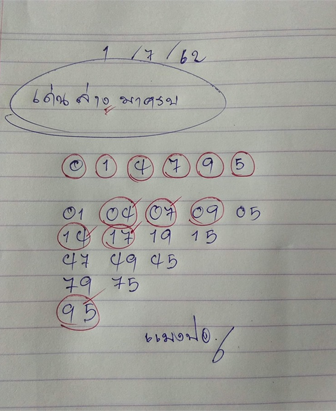 1 / 7 / 62
เด่นล่าง มาครบ
0 1 4 7 9 5
01 04 07 09 05
14 17 19 15
47 49 45
79 75
95
แมงปอ